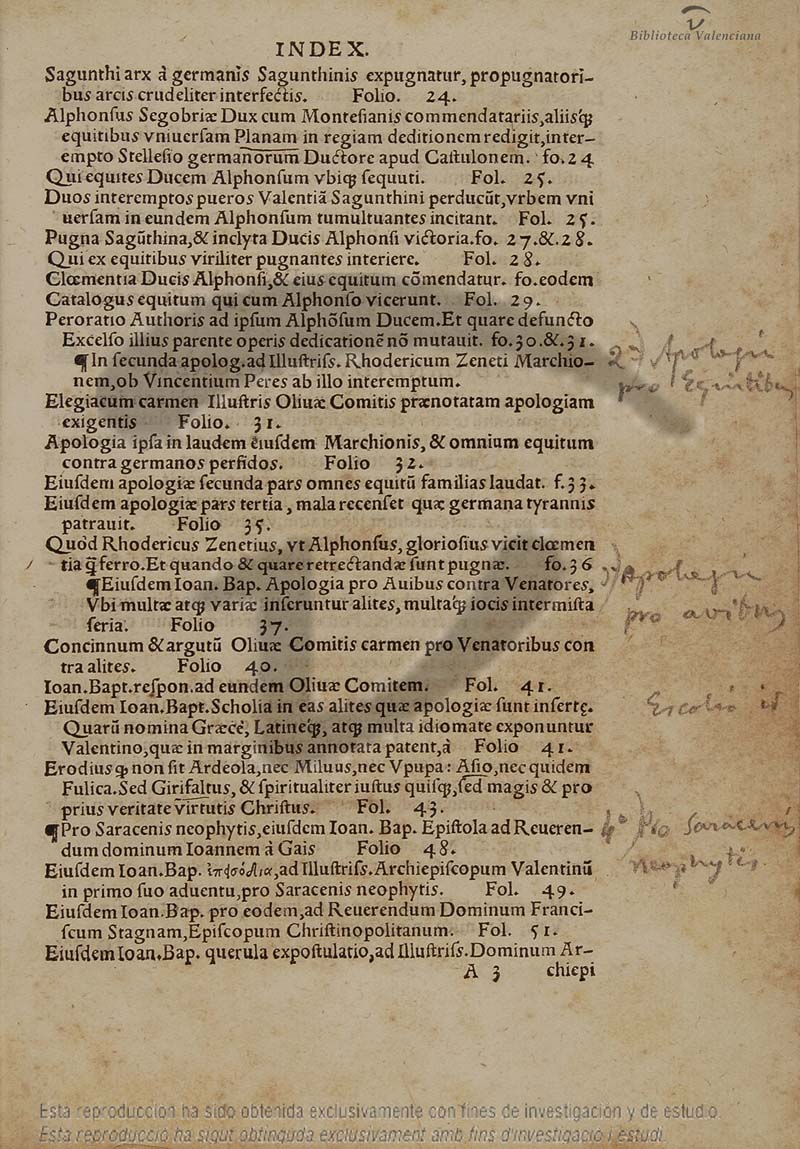 Biblioteca Valenciana
INDEX.
Sagunthi arx à germanis Sagunthinis expugnatur, propugnatori-
bus arcis crudeliter interfectis. Folio. 24.
Alphonſus Segobriæ Dux cum Monteſianis commendatariis,aliisq́;
equitibus vniuerſam Planam in regiam deditionem redigit,inter-
empto Stelleſio germanorum Ductore apud Caſtulonem. fo.24
Qui equites Ducem Alphonſum vbiq; ſequuti. Fol. 25.
Duos interemptos pueros Valentiã Sagunthini perducũt,vrbem vni
uerſam in eundem Alphonſum tumultuantes incitant. Fol. 25.
Pugna Sagũthina,& inclyta Ducis Alphonſi victoria.fo. 27.&.28.
Qui ex equitibus viriliter pugnantes interiere. Fol. 28.
Clœmentia Ducis Alphonſi,& eius equitum cõmendatur. fo.eodem
Catalogus equitum qui cum Alphonſo vicerunt. Fol. 29.
Peroratio Authoris ad ipſum Alphõſum Ducem.Et quare defuncto
Excelſo illius parente operis dedicationẽ nõ mutauit. fo.30.&.31.
¶In ſecunda apolog.ad Illuſtriſs. Rhodericum Zeneti Marchio-
nem,ob Vincentium Peres ab illo interemptum.
2ª Apologia
pro Equitibus
Elegiacum carmen Illuſtris Oliuæ Comitis prænotatam apologiam
exigentis Folio. 31.
Apologia ipſa in laudem eiuſdem Marchionis, & omnium equitum
contra germanos perfidos. Folio 32.
Eiuſdem apologiæ ſecunda pars omnes equitũ familias laudat. f.33.
Eiuſdem apologiæ pars tertia, mala recenſet quæ germana tyrannis
patrauit. Folio 35.
Quòd Rhodericus Zenetius, vt Alphonſus, glorioſius vicit clœmen
tia q̃ ferro.Et quando & quare retrectandæ ſunt pugnæ. fo.36
¶Eiuſdem Ioan. Bap. Apologia pro Auibus contra Venatores,
Vbi multæ atq; variæ inſeruntur alites, multaq́; iocis intermiſta
ſeria. Folio 37.
Apologia
pro avibus
Concinnum & argutũ Oliuæ Comitis carmen pro Venatoribus con
tra alites. Folio 40.
Ioan.Bapt.reſpon.ad eundem Oliuæ Comitem. Fol. 41.
Eiuſdem Ioan.Bapt.Scholia in eas alites quæ apologiæ ſunt inſertę.
Quarũ nomina Græcè, Latineq́;, atq; multa idiomate exponuntur
Valentino,quæ in marginibus annotata patent,à Folio 41.
Erodiusq; non ſit Ardeola,nec Miluus,nec Vpupa: Aſio,nec quidem
Fulica.Sed Girifaltus, & ſpiritualiter iuſtus quiſq;,ſed magis & pro
prius veritate virtutis Chriſtus. Fol. 43.
¶Pro Saracenis neophytis,eiuſdem Ioan. Bap. Epiſtola ad Reueren-
dum dominum Ioannem à Gais Folio 48.
Pro Saracenis
neophytis.
Eiuſdem Ioan.Bap. ,ad Illuſtriſs.Archiepiſcopum Valentinũ
in primo ſuo aduentu,pro Saracenis neophytis. Fol. 49.
Eiuſdem Ioan.Bap. pro eodem,ad Reuerendum Dominum Franci-
ſcum Stagnam,Epiſcopum Chriſtinopolitanum. Fol. 51.
Eiuſdem Ioan.Bap. querula expoſtulatio,ad Illuſtriſs.Dominum Ar-
A 3 chiepi
Esta reproducción ha sido obtenida exclusivamente con fines de investigación y de estudio.
Esta reproducció ha sigut obtinguda exclusivament amb fins d'investigació i estudi.